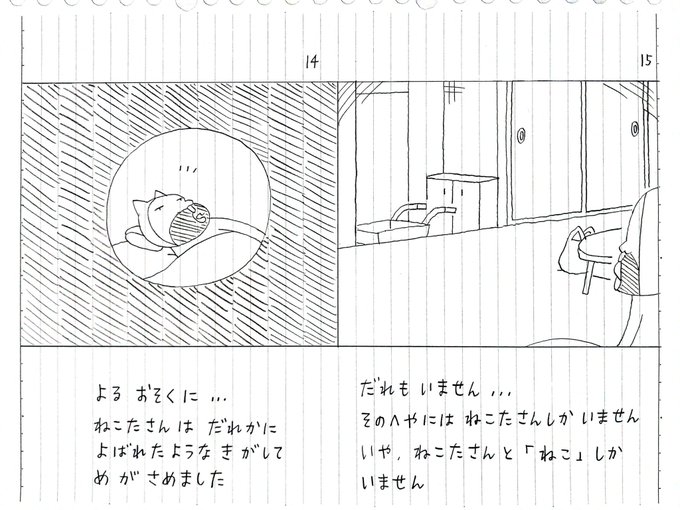 14
よる おそくに ...
ねこたさん は だれかに
よばれたような き がして
め が さめました
15
だれも いません ...
そのへやには ねこたさんしか いません
いや、ねこたさんと「ねこ」しか
いません